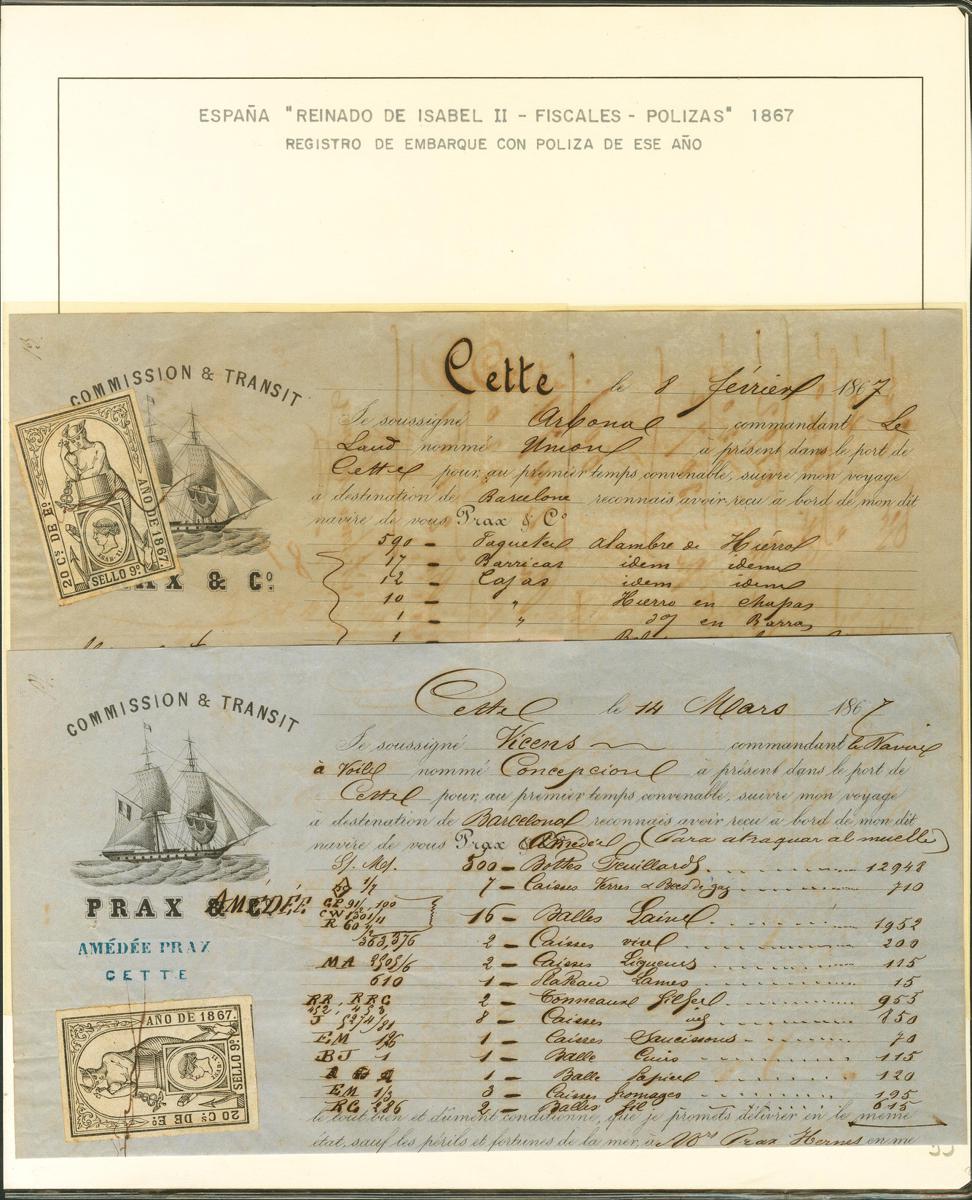 ESPAÑA "REINADO DE ISABEL II - FISCALES - POLIZAS" 1867
REGISTRO DE EMBARQUE CON POLIZA DE ESE AÑO
COMMISSION & TRANSIT
AÑO DE 1867.
20 Cs. DE Eo.
SELLO 9o.
AX & Co.
Cette le 8 février 1867
Je soussigné Arbona commandant Le
Laud nommé Union à présent dans le port de
Cette pour, au premier temps convenable, suivre mon voyage
a destination de Barcelone reconnais avoir reçu à bord de mon dit
navire de vous Prax & Co
590 - Paquetes alambre de Hierro
17 - Barricas idem idem
12 - Cajas idem idem
10 - " Hierro en chapas
1 - " en Barras
1 -
COMMISSION & TRANSIT
PRAX & AMÉDÉE
AMÉDÉE PRAX
CETTE
AÑO DE 1867.
SELLO 9o.
20 Cs. DE Eo.
Cette le 14 Mars 1867
Je soussigné Vicens commandant le Navire
à Voile nommé Concepcion à présent dans le port de
Cette pour, au premier temps convenable, suivre mon voyage
a destination de Barcelona reconnais avoir reçu à bord de mon dit
navire de vous Prax Amédée (Para atraquar al muelle)
500 - Bottes Feuillards 12948
7 - Caisses Verres 710
GP 91/ 100
CW 1501/1
R 60
16 - Balles Laine 1952
363,376 2 - Caisses 200
MA 2505/6 2 - Caisses Liqueurs 115
610 1 - Lames 15
RR, RRG 2 - Tonneaux 955
J 5274/81 8 - Caisses 850
EM 1 - Caisses Saucissons 70
BJ 1 1 - Balle Cuirs 115
1 - Balle Tapis 120
EM 1/3 3 - Caisses fromages 195
RG 286 2 - Balles fil 615
le tout bien et dûment conditionné, que je promets délivrer en le même
état, sauf les périls et fortunes de la mer, à Prax Hermes en me